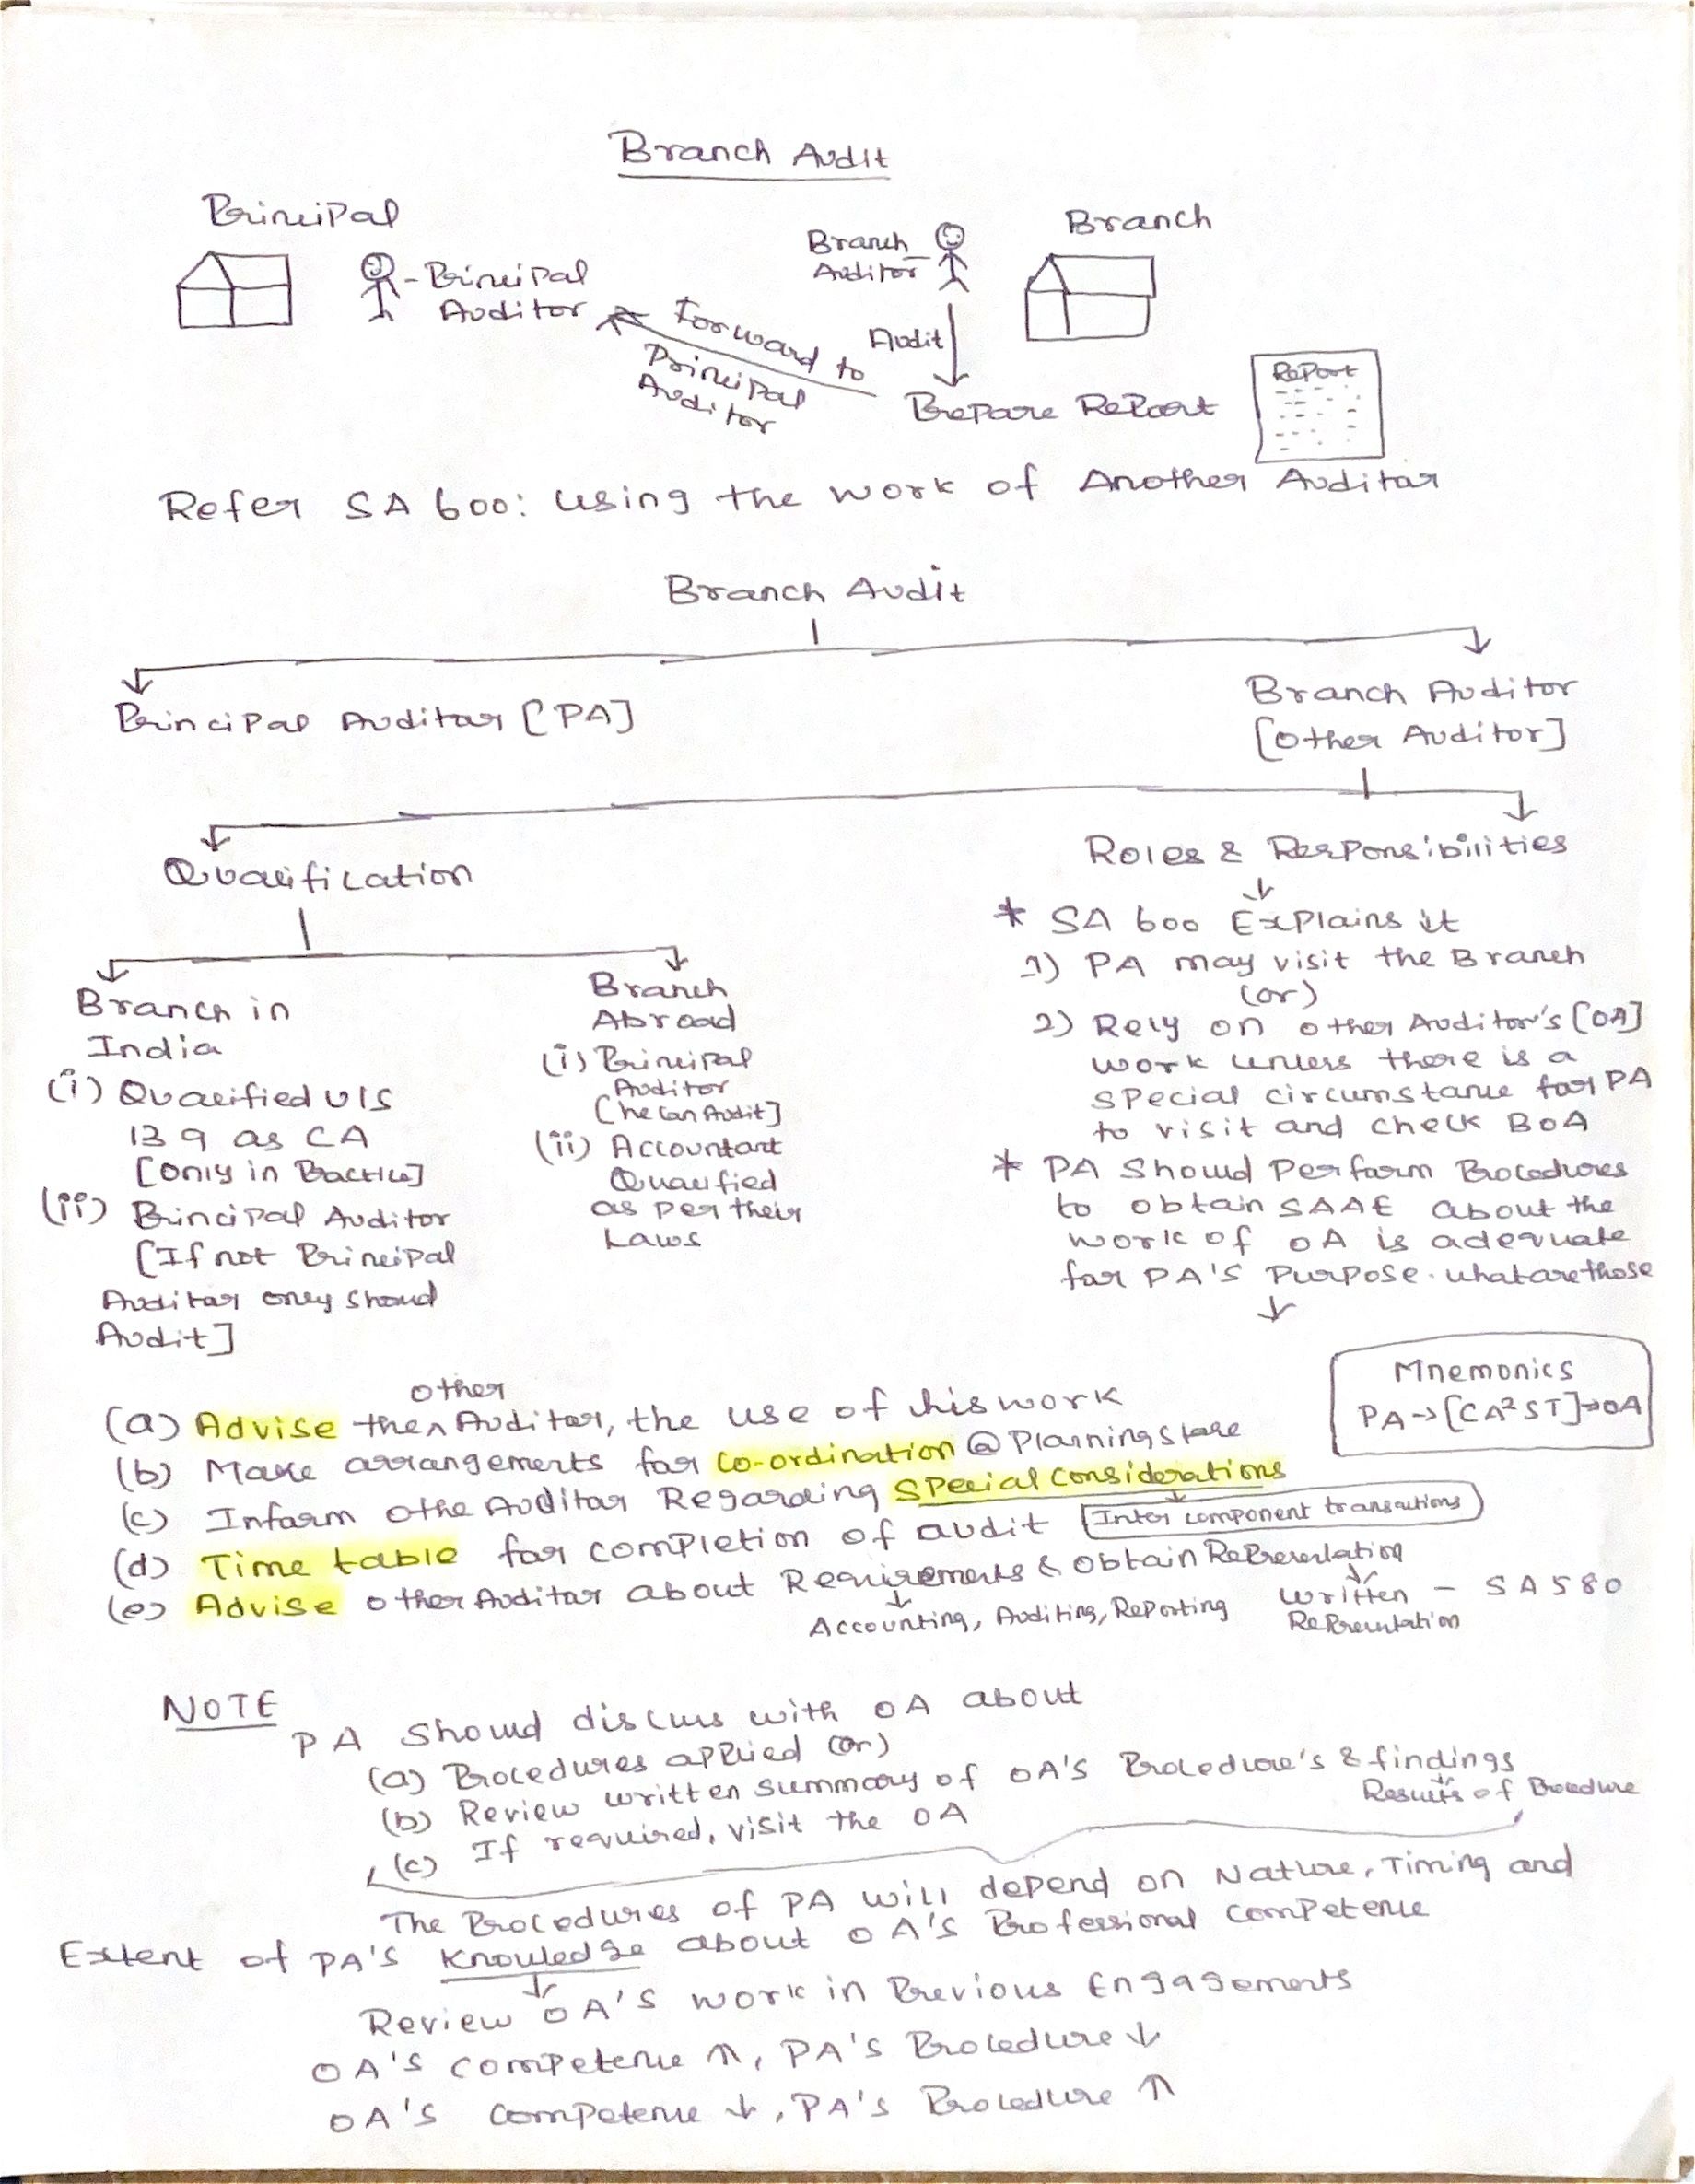 Branch Audit
Principal
Branch
Branch
Auditor
- Principal
Auditor
Forward to
Principal
Auditor
Audit
Prepare Report
Report
Refer SA 600: Using the work of Another Auditor
Branch Audit
Principal Auditor [PA]
Branch Auditor
[Other Auditor]
Qualification
Roles & Responsibilities
Branch in
India
(i) Qualified U/S
139 as CA
[Only in Practice]
(ii) Principal Auditor
[If not Principal
Auditor only should
Audit]
Branch
Abroad
(i) Principal
Auditor
[he can Audit]
(ii) Accountant
Qualified
as per their
Laws
* SA 600 Explains it
1) PA may visit the Branch
(or)
2) Rely on other Auditor's [OA]
work unless there is a
special circumstance for PA
to visit and check BOA
* PA Should Perform Procedures
to obtain SAAE about the
work of OA is adequate
for PA's Purpose. what are those
Mnemonics
PA → [CA²ST] → OA
other
(a) Advise the ^ Auditor, the use of his work
(b) Make arrangements for co-ordination @ Planning Stage
(c) Inform othe Auditor Regarding Special Considerations
Inter component transactions
(d) Time table for completion of audit
(e) Advise other Auditor about Requirements & Obtain Representation
Accounting, Auditing, Reporting
Written - SA 580
Representation
NOTE
PA Should discuss with OA about
(a) Procedures applied (or)
(b) Review written summary of OA's Procedure's & findings
Results of Procedure
(c) If required, visit the OA
The Procedures of PA will depend on Nature, Timing and
Extent of PA's Knowledge about OA's Professional Competence
Review OA's work in Previous Engagements
OA's competence ↑, PA's Procedure ↓
OA's competence ↓, PA's Procedure ↑